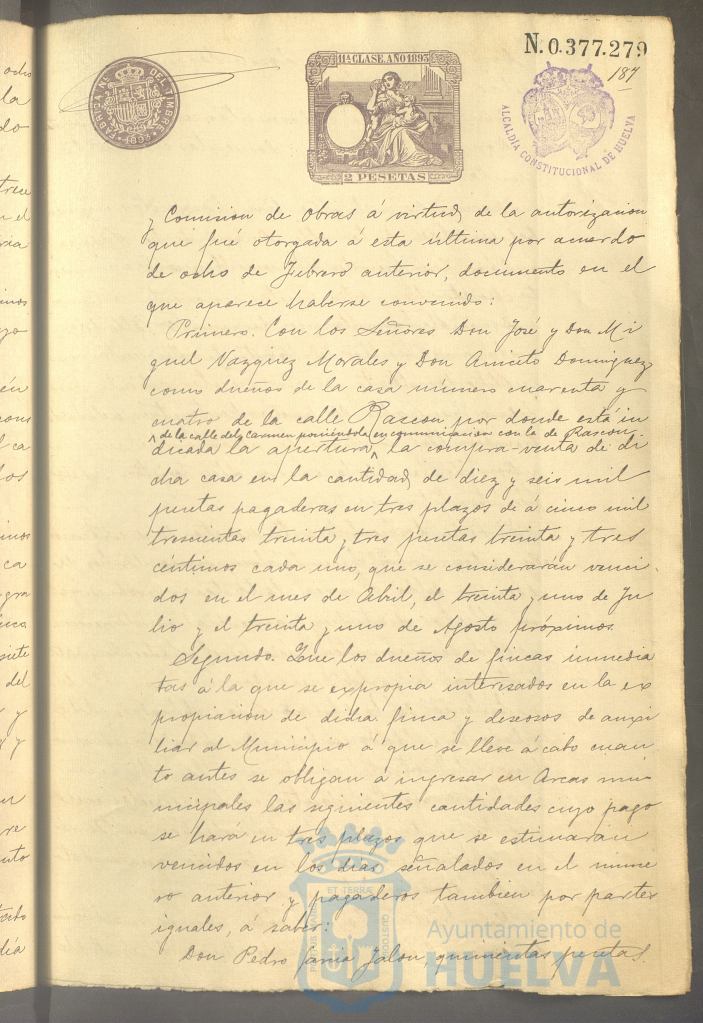 N. 0.377.279
187
11ª CLASE. AÑO 1893
2 PESETAS
FABRICA N. DEL TIMBRE
1893
ALCALDÍA CONSTITUCIONAL DE HUELVA
y Comision de Obras á virtud de la autorizacion
que fué otorgada á esta última por acuerdo
de ocho de Febrero anterior, documento en el
que aparece haberse convenido:
Primero. Con los Señores Don José y Don Mi
guel Vazquez Morales y Don Aniceto Dominguez
como dueños de la casa número cuarenta y
cuatro de la calle Rascon por donde está in
de la calle del Carmen poniéndola en comunicacion con la de Rascon
dicada la apertura, la compra-venta de di
cha casa en la cantidad de diez y seis mil
pesetas pagaderas en tres plazos de á cinco mil
trescientas treinta y tres pesetas treinta y tres
céntimos cada uno, que se considerarán venci-
dos en el mes de Abril, el treinta y uno de Ju
lio y el treinta y uno de Agosto próximos.
Segundo. Que los dueños de fincas inmedia
tas á la que se expropia interesados en la ex
propiacion de dicha finca y deseosos de auxi
liar al Municipio á que se lleve á cabo cuan
to antes se obligan á ingresar en Arcas mu-
nicipales las siguientes cantidades cuyo pago
se hará en tres plazos que se estimarán
vencidos en los dias señalados en el nume
ro anterior y pagaderos tambien por partes
iguales, á saber:
Don Pedro Garcia Jalon, quinientas pesetas.
Ayuntamiento de
HUELVA